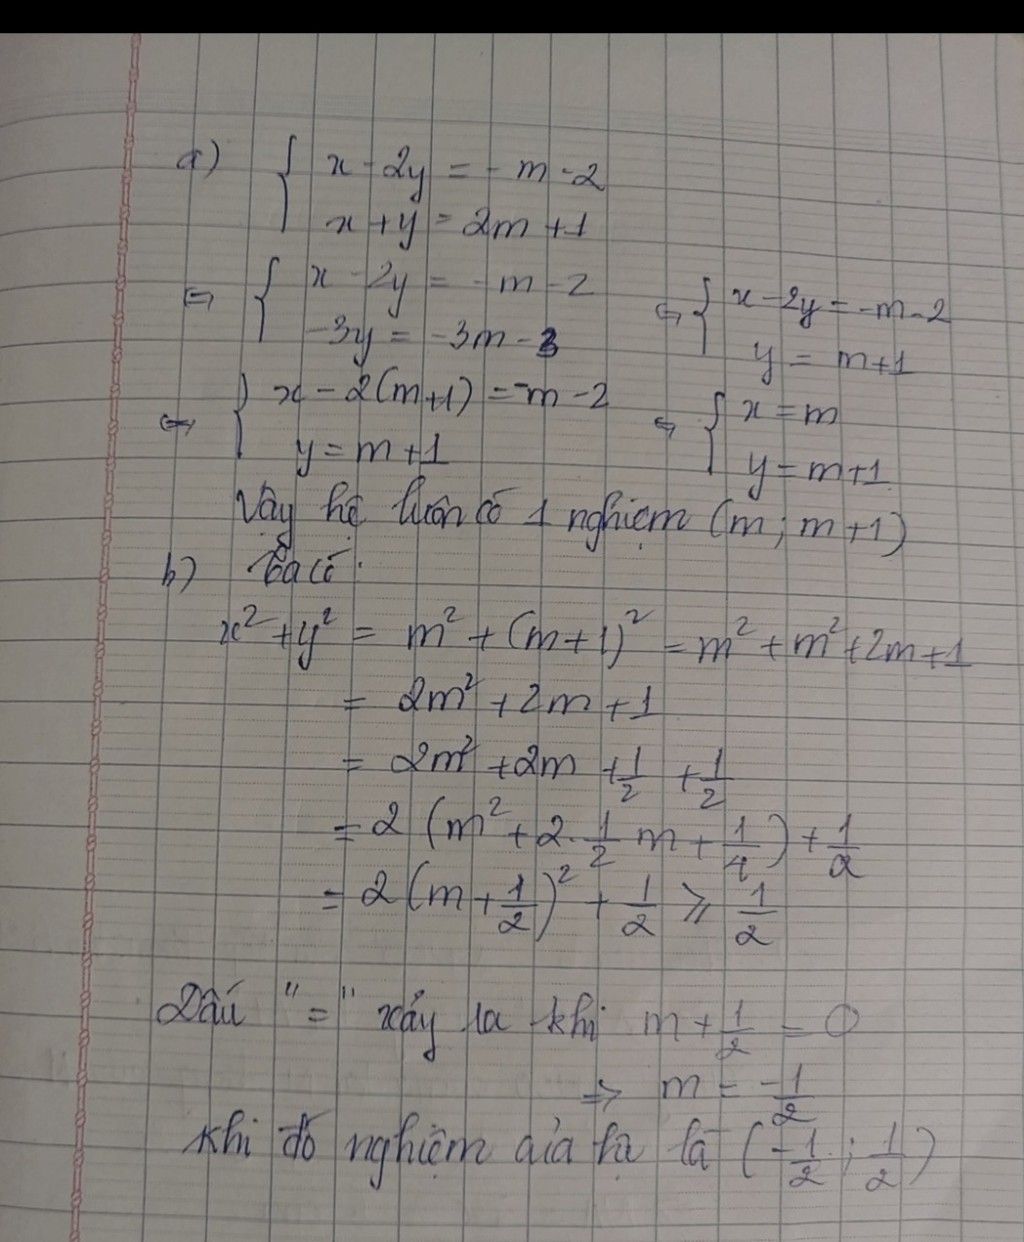 a) { x - 2y = - m - 2
x + y = 2m + 1
⇔ { x - 2y = - m - 2 ⇔ { x - 2y = -m - 2
-3y = -3m - 3 y = m+1
⇔ { x - 2(m+1) = -m - 2 ⇔ { x = m
y = m + 1 y = m+1
Vậy hệ luôn có 1 nghiệm (m ; m + 1)
b) Ta có :
x² + y² = m² + (m+1)² = m² + m² + 2m + 1
= 2m² + 2m + 1
= 2m² + 2m + 1/2 + 1/2
= 2 (m² + 2. 1/2 m + 1/4) + 1/2
= 2 (m + 1/2)² + 1/2 ⩾ 1/2
Dấu "=" xảy ra khi m + 1/2 = 0
=> m = -1/2
Khi đó nghiệm của hệ là (-1/2 ; 1/2)